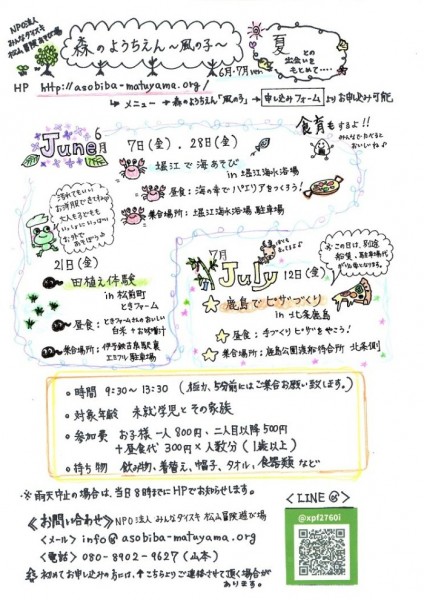 NPO法人
みんなダイスキ
松山冒険遊び場
森のようちえん〜風の子〜
6月・7月ver
夏との
出会いを
もとめて・・・・
HP http://asobiba-matuyama.org/
↳ メニュー → 森のようちえん「風の子」→ 申し込みフォーム よりお申し込み可能
食育もするよ!!
みんなでたべると
おいしいね♪
June 6月
7日(金)、28日(金)
= 堀江で海あそび
in 堀江海水浴場
昼食:海の幸でパエリアをつくろう!
集合場所:堀江海水浴場 駐車場
汚れてもいい
お洋服できてね♡
大人も子どもも
いっしょにいっぱい
お外で
あそぼう♪
21日(金)
= 田植え体験
in 松前町
ときファーム
昼食:ときファームさんのおいしい
お米 + お味噌汁
集合場所:伊予鉄古泉駅裏
エミフル駐車場
7月
July 12日(金)
☆鹿島でピザづくり
in 北条鹿島
☆昼食:手づくりピザをやこう!
☆集合場所:鹿島公園渡船待合所 北条側
※この日は、別途
船賃・駐車場代
が必要となります。
◦時間 9:30〜13:30 (極力、5分前にはご集合お願い致します。)
◦対象年齢 未就学児とその家族
◦参加費 お子様一人800円、二人目以降500円
+昼食代 300円×人数分(1歳以上)
◦持ち物 飲み物、着替え、帽子、タオル、食器類 など
※雨天中止の場合は、当日8時までにHPでお知らせします。
≪お問い合わせ≫NPO法人 みんなダイスキ 松山冒険遊び場
<メール> info@asobiba-matuyama.org
<電話> 080-8902-9627(山本)
初めてお申し込みの方には、↑こちらよりご連絡させて頂く場合が
あります。
<LINE@>
@xpf2760i